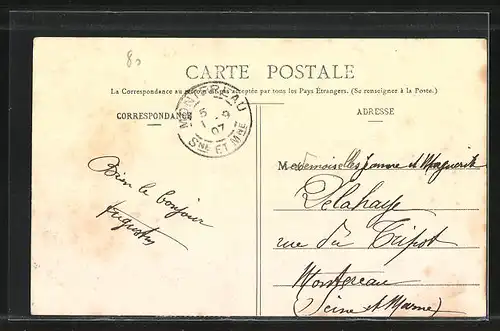 80
CARTE POSTALE
La Correspondance au recto n'est pas acceptée par tous les Pays Étrangers. (Se renseigner à la Poste.)
CORRESPONDANCE
MONTEREAU
5
07
SNE ET MNE
ADRESSE
Bien le bonjour
Mesdemoiselles Jeanne et Marguerite
Delahaye
rue du Tripot
Montereau
(Seine et Marne)